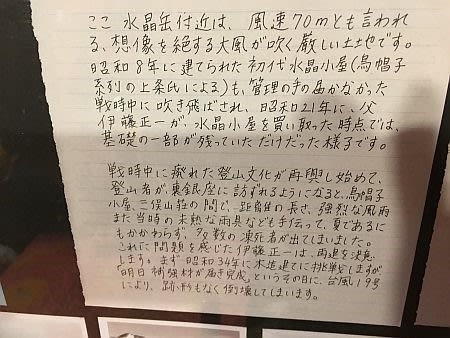 ここ 水晶岳付近は、風速70mとも言われ
る、想像を絶する大風が吹く厳しい土地です。
昭和8年に建てられた初代水晶小屋(烏帽子
系列の上條氏による)も、管理の手の届かなかった
戦時中に吹き飛ばされ、昭和21年に、父
伊藤正一が、水晶小屋を買い取った時点では、
基礎の一部が残っていただけだった様子です。
戦時中に廃れた登山文化が再興し始めて、
登山者が、裏銀座に訪ずれるようになると、烏帽子
小屋、三俣山荘の間で、距離の長さ、強烈な風雨
また当時の未熟な雨具なども手伝って、夏であるに
もかかわらず、多数の凍死者が出てしまいました。
これに問題を感じた伊藤正一は、再建を決意
します。まず昭和34年に木造建てに挑戦しますが
「明日補強材が届き完成」というその日に、台風19号
により、跡形もなく倒壊してしまいます。